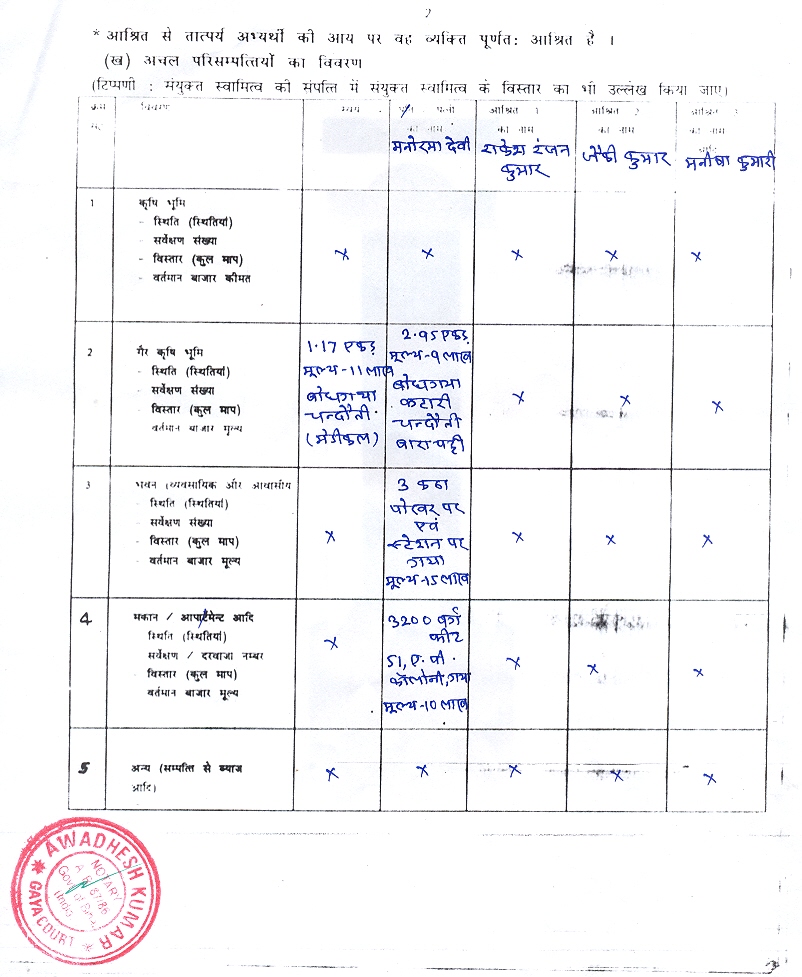 2
* आश्रित से तात्पर्य अभ्यर्थी की आय पर वह व्यक्ति पूर्णत: आश्रित है ।
(ख) अचल परिसम्पत्तियों का विवरण
(टिप्पणी : संयुक्त स्वामित्व की संपत्ति में संयुक्त स्वामित्व के विस्तार का भी उल्लेख किया जाए)
क्रम सं. विवरण स्वयं पति / पत्नी का नाम आश्रित 1 का नाम आश्रित 2 का नाम आश्रित 3 का नाम
मनोरमा देवी राकेश रंजन कुमार जैकी कुमार मनीषा कुमारी
1 कृषि भूमि
- स्थिति (स्थितियां)
- सर्वेक्षण संख्या
- विस्तार (कुल माप) x x x x x
- वर्तमान बाजार कीमत
2 गैर कृषि भूमि
- स्थिति (स्थितियां)
- सर्वेक्षण संख्या
- विस्तार (कुल माप)
वर्तमान बाजार मूल्य
1.17 एकड़
मूल्य-11 लाख
बोधगया
चन्दौती
(मेडीकल)
2.95 एकड़
मूल्य-9 लाख
बोधगया
कटारी
चन्दौती
बारा पट्टी
x x x
3 भवन (व्यवसायिक और आवासीय
- स्थिति (स्थितियां)
- सर्वेक्षण संख्या
- विस्तार (कुल माप)
- वर्तमान बाजार मूल्य
x
3 कठा
पोखर पर
एवं
स्टेशन पर
गया
मूल्य-15 लाख
x x x
4 मकान / आपार्टमेन्ट आदि
स्थिति (स्थितियां)
सर्वेक्षण / दरवाजा नम्बर
विस्तार (कुल माप)
वर्तमान बाजार मूल्य
x
3200 वर्ग
फीट
51, ए. पी.
कॉलोनी, गया
मूल्य-10 लाख
x x x
5 अन्य (सम्पत्ति से ब्याज x x x x x
आदि)
AWADHESH KUMAR
GAYA COURT
NOTARY